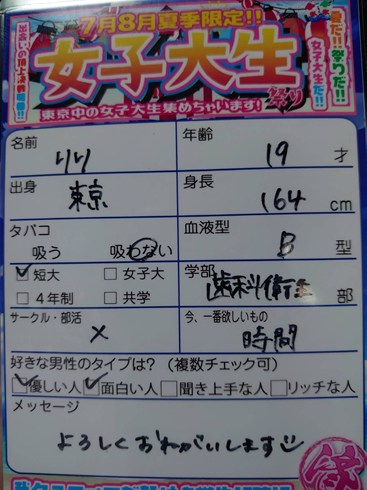 7月8月夏季限定!!
出会いの頂上決戦開幕!!
女子大生
祭り
夏だ!!祭りだ!!
女子大生だ!!
東京中の女子大生集めちゃいます!
名前 りり
年齢 19 才
出身 東京
身長 164 cm
タバコ
吸う 吸わない
血液型 B 型
短大 女子大
4年制 共学
学部 歯科衛生 部
サークル・部活 ×
今、一番欲しいもの 時間
好きな男性のタイプは?(複数チェック可)
優しい人 面白い人 聞き上手な人 リッチな人
メッセージ
よろしくおねがいします